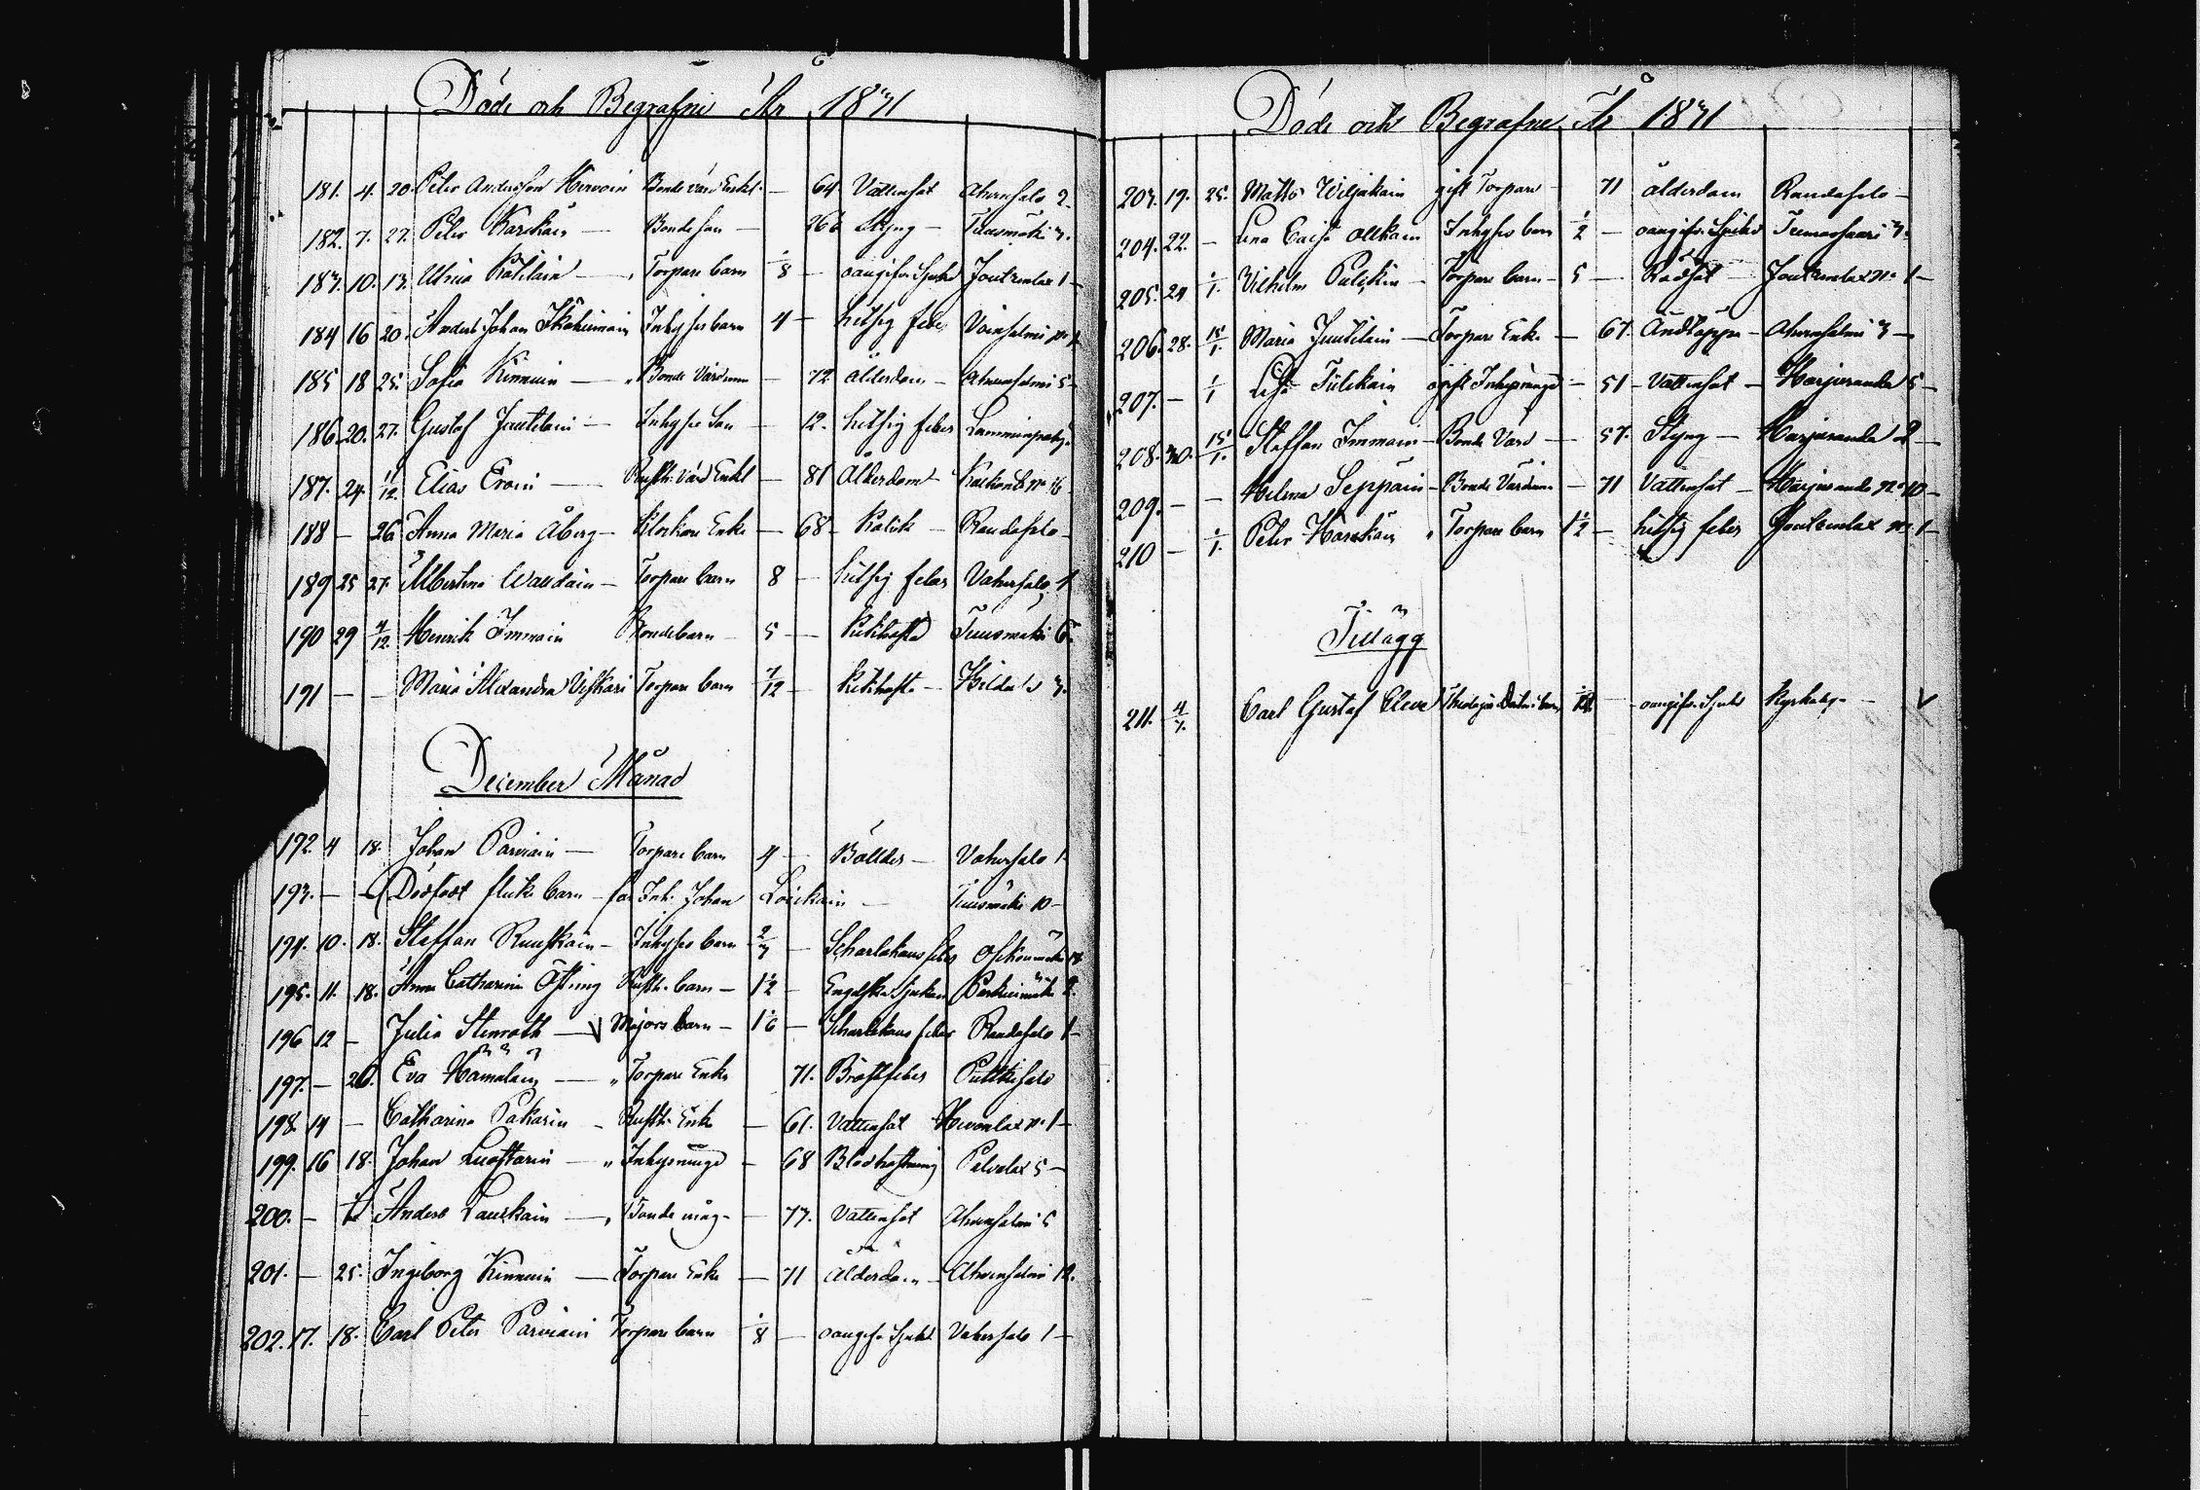 Döde och Begrafne År 1831
181. 4. 20. Peter Andersson Hirvoin Bonde värd Enkl. — 64 Vattensot Ahvensalo 2
182. 7. 27. Peter Karhain — Bonde son — 26 Styng — Tuusmäki 3.
183. 10. 13. Ulrica — Torpare barn 1/8 — oangifv. Sjukd. Joutsenlax 1 —
184 16 20. Anders Johan Inhyses barn 4 — hitsig feber
185 18 25. Sofia Kinnuin — Bonde Värdinna — 72 Ålderdom — Ahvensalmi 5 —
186 20. 27. Gustaf Juutilain — Inhyses Son — 12. hitsig feber
187. 24. 11/12 Elias Eroin — Rusth. värd Enkl — 81 Ålderdom N° 16
188 — 26 Anna Maria Åberg — Klockare Enka — 68 Kolik — Randasalo —
189 25 27. Albertina — Torpare barn 8 — hitsig feber Vahersalo 1
190 29 4/12. Henrik Immoin Bondebarn — 5 — Kikhosta Tuusmäki 6.
191 — — Maria Alexandra Viskari Torpare barn 7/12 — Kikhosta — 3.
December Månad
192. 4 18. Johan Parviain — Torpare barn 4 — Bölder — Vahersalo 1
193. — — Dödfödt flicke barn — far Inh. Johan Loikain — Tuusmäki 10 —
194. 10. 18. Staffan Ruuskain — Inhyses barn 2/3 — Scharlakans feber
195. 11. 18. Anna Catharina Östring Rusth. barn — 1½ — Engelska Sjukan 2.
196 12 — Julia Stenroth — V Majors barn — 1 1/6 — Scharlakans feber Randasalo 1 —
197. — 26. Eva Hämäläin — " Torpare Enka 71. Bröstfeber Pulkkisalo
198. 14 — Catharina Pakarin — Rusth. Enka — 61. Vattensot Hirvonlax N° 1 —
199. 16 18. Johan Luostarin — " Inhysinge — 68 Blodhostning Palvalax 5 —
200. — 1/1 Anders Lauckain — " Bonde — 73. Vattensot Ahvensalmi 5
201. — 25. Ingeborg Kinnuin — Torpare Enka — 71 Ålderdom — Ahvensalmi 12.
202. 17. 18. Carl Peter Parviain Torpare barn 1/8 — oangifv. Sjukd. Vahersalo 1 —
Döde och Begrafne År 1831
203. 19. 25. Matts Wiljakain gift Torpare — 71 ålderdom Randasalo —
204. 22. — Lena Caisa Ollikain Inhyses barn ½ — oangifv. Sjukd. 3.
205. 24 1/1. Vilhelm Pulckin — Torpare barn — 5 — Rödsot Joutsenlax N° 1 —
206. 28. 15/1. Maria Juutilain — Torpare Enka — 67. Andtäppa — Ahvensalmi 3 —
207. — 1/1 Lisa Tiilikain gift Inhysinge — 51 — Vattensot — Harjuranda 5 —
208. 30. 15/1. Staffan Immoin — Bonde Värd — 57. Styng — Harjuranda 2 —
209. — — Helena Seppäin — Bonde Värdinna — 71 Vattensot — Harjuranda N° 10 —
210 — 1/1. Peter Karhain " Torpare barn 1½ — hitsig feber Joutsenlax N° 1 —
Tillägg
211. 4/7. Carl Gustaf Cleve barn — oangifv. Sjukd. — V